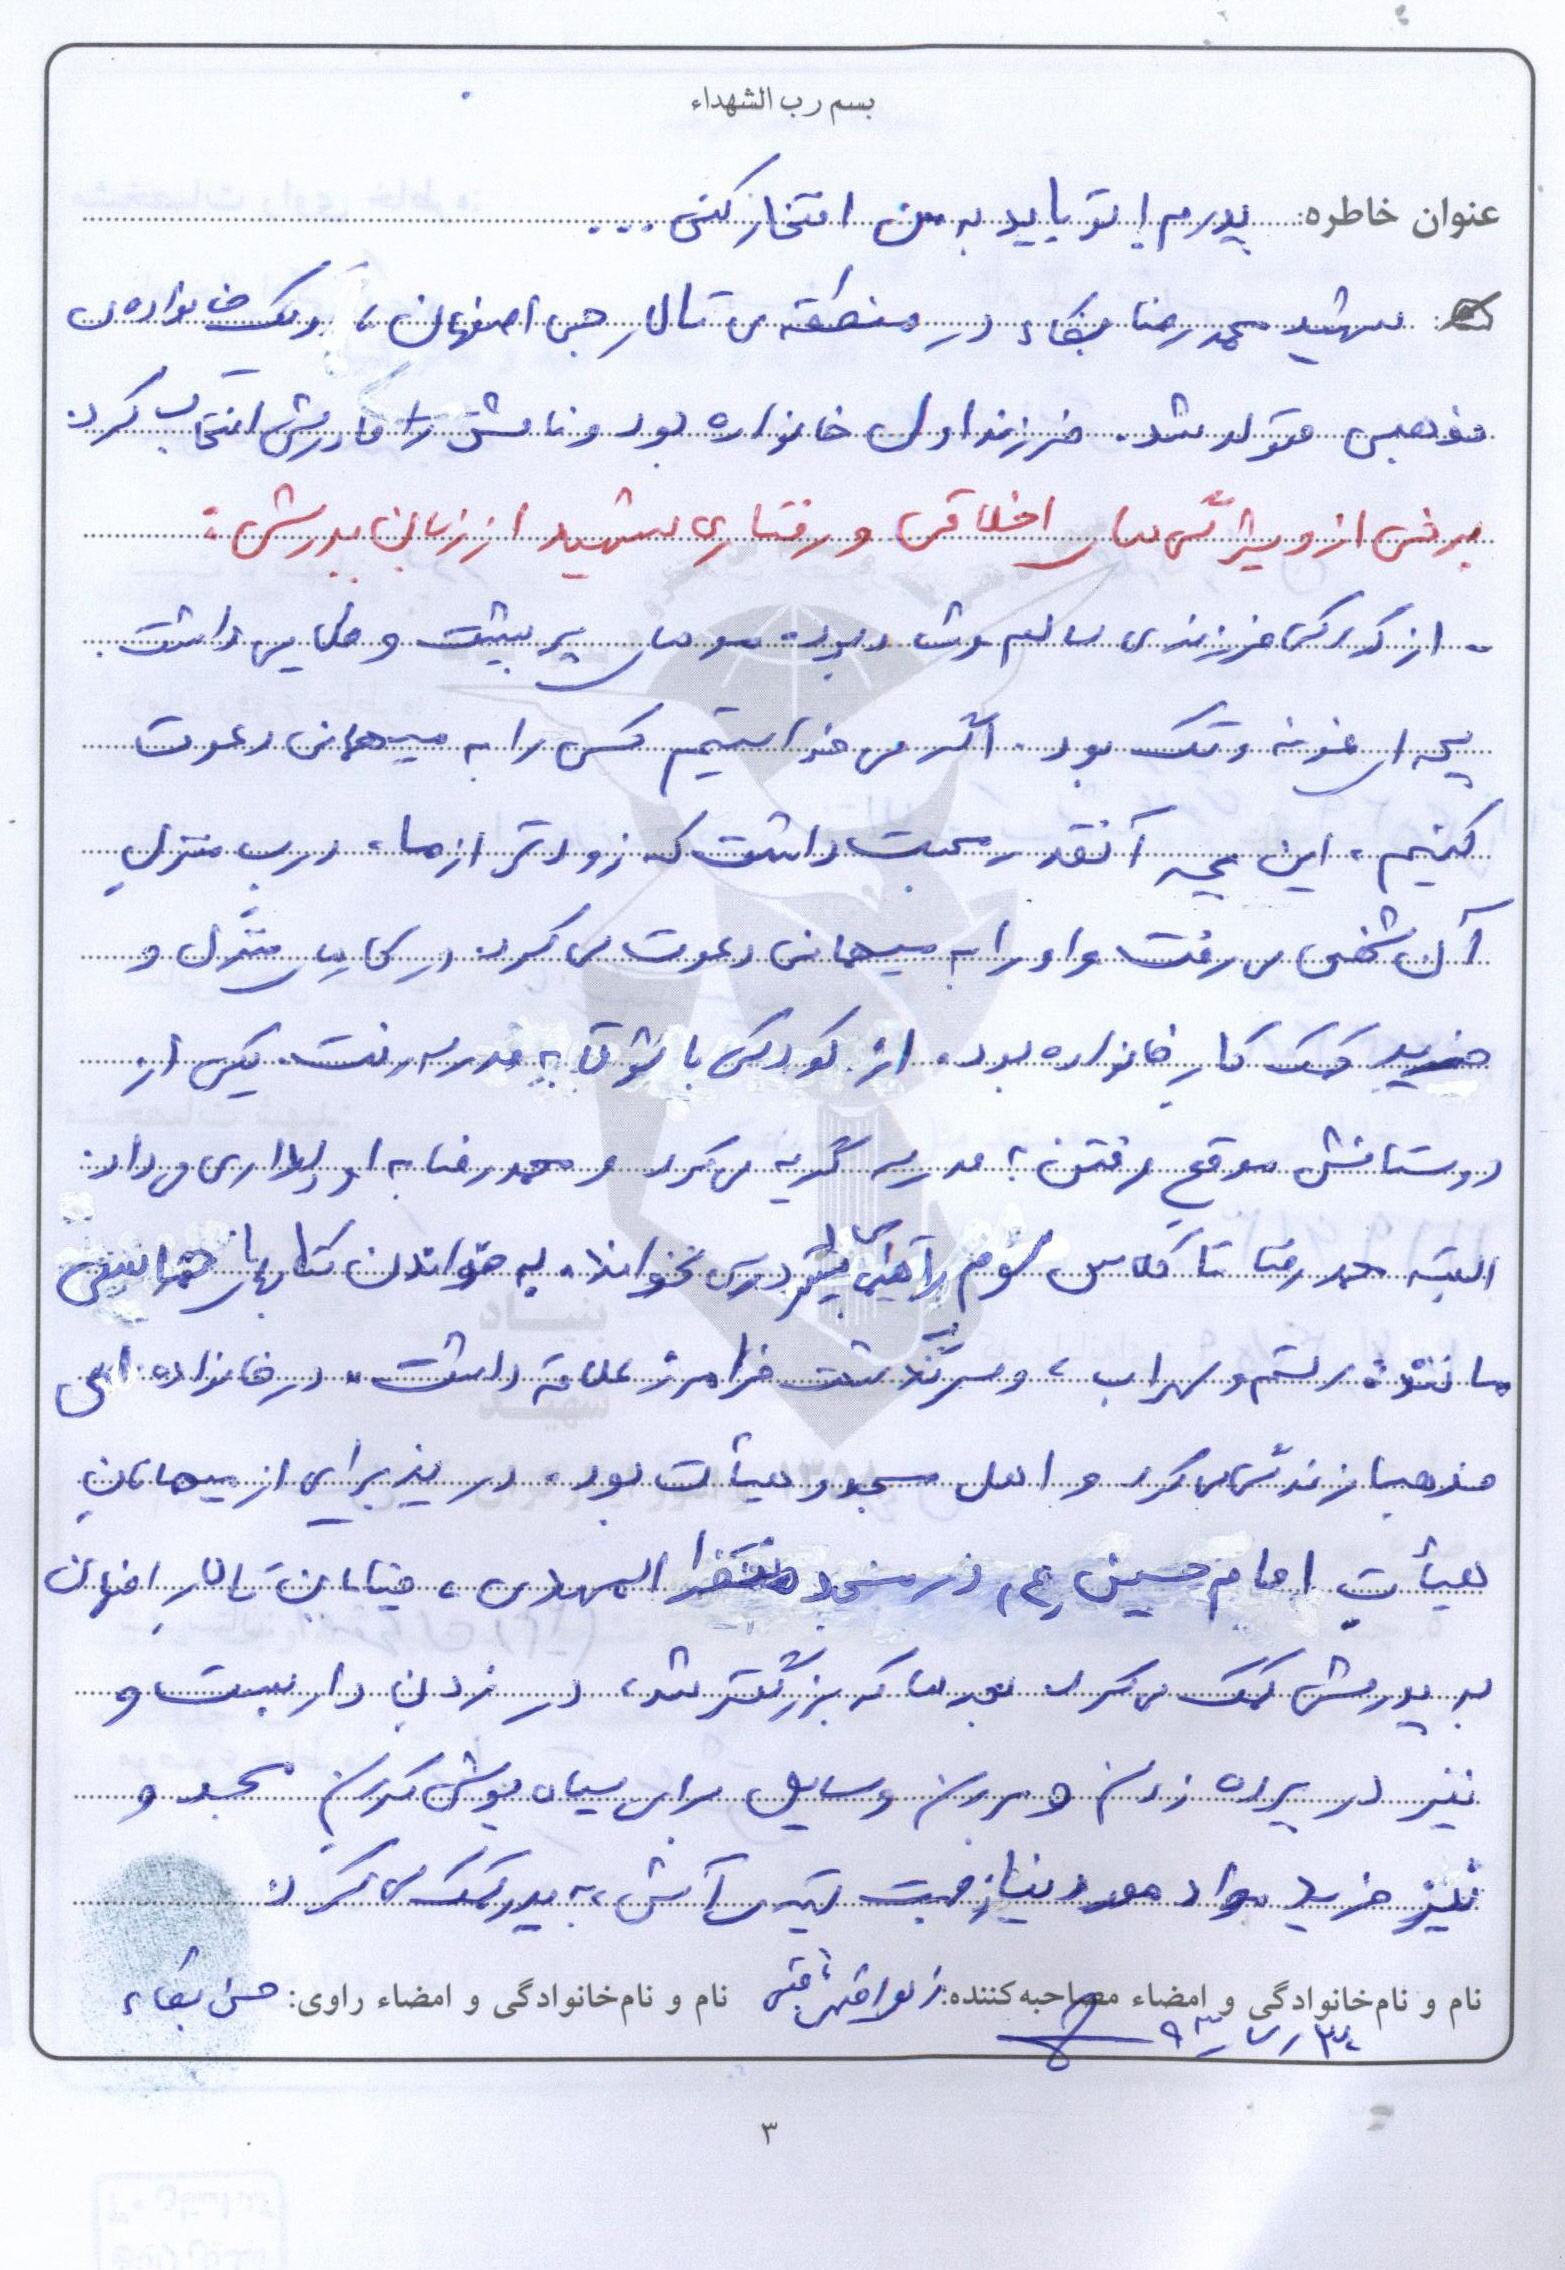 بسم رب الشهداء
عنوان خاطره: پدرم! تو باید به من افتخار کنی ...
شهید محمدرضا بقاء در منطقه‌ی تالار جی اصفهان، در یک خانواده‌ی
مذهبی متولد شد. فرزند اول خانواده بود و نامش را مادرش انتخاب کرد.
برخی از ویژگی‌های اخلاقی و رفتاری شهید از زبان پدرش:
- از کودکی فرزندی سالم و شاد بود. موهای پر پشت و طلایی داشت.
بچه‌ای نمونه و تک بود. اگر می‌خواستیم کسی را به میهمانی دعوت
کنیم، این بچه آنقدر محبت داشت که زودتر از ما، درب منزلِ
آن شخص می‌رفت و او را به میهمانی دعوت می‌کرد. در کارهای منزل و
خرید کمک کارِ خانواده بود. از کودکی با شوق به مدرسه رفت. یکی از
دوستانش موقع رفتن به مدرسه گریه می‌کرد و محمدرضا به او دلداری می‌داد.
البته محمدرضا تا کلاس سوم راهنمایی بیشتر درس نخواند. به خواندن کتابهای حماسی
مانند: رستم و سهراب، و سرگذشت فرامرز علاقه داشت. در خانواده‌ای
مذهبی زندگی می‌کرد و اهل مسجد و هیأت بود. در پذیرایی از میهمانانِ
هیأتِ امام حسین (ع) در مسجد المهدی، خیابان تالارِ اصفهان
به پدرش کمک می‌کرد. بعدها که بزرگتر شد، در زدنِ داربست و
نیز در پرده زدن و بردن وسایل برای سیاه پوش کردن مسجد و
نیز خرید مواد مورد نیاز جهت تهیه‌ی آش، به پدر کمک می‌کرد.
نام و نام‌خانوادگی و امضاء مصاحبه‌کننده: نام و نام‌خانوادگی و امضاء راوی: حسن بقاء
۳